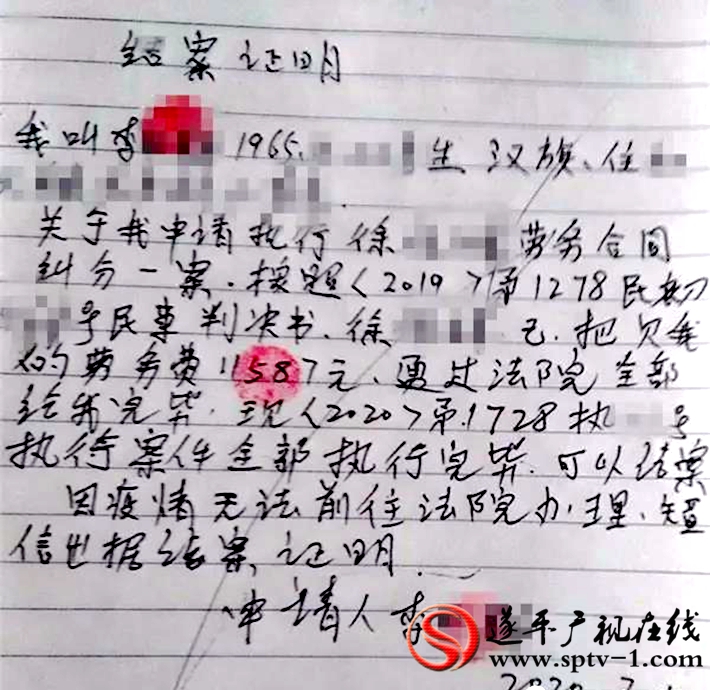 结案证明
我叫李 1965. 生 汉族、住
关于我申请执行徐 劳务合同
纠纷一案.按照〈2019〉第1278民初
号民事判决书.徐 已.把欠我
的劳务费11587元、通过法院全部
给我完毕.现〈2020〉第.1728执 号
执行案件全部执行完毕.可以结案
因疫情无法前往法院办理.
据结案证明
申请人 李
遂平广视在线
www.sptv-1.com
2020.2